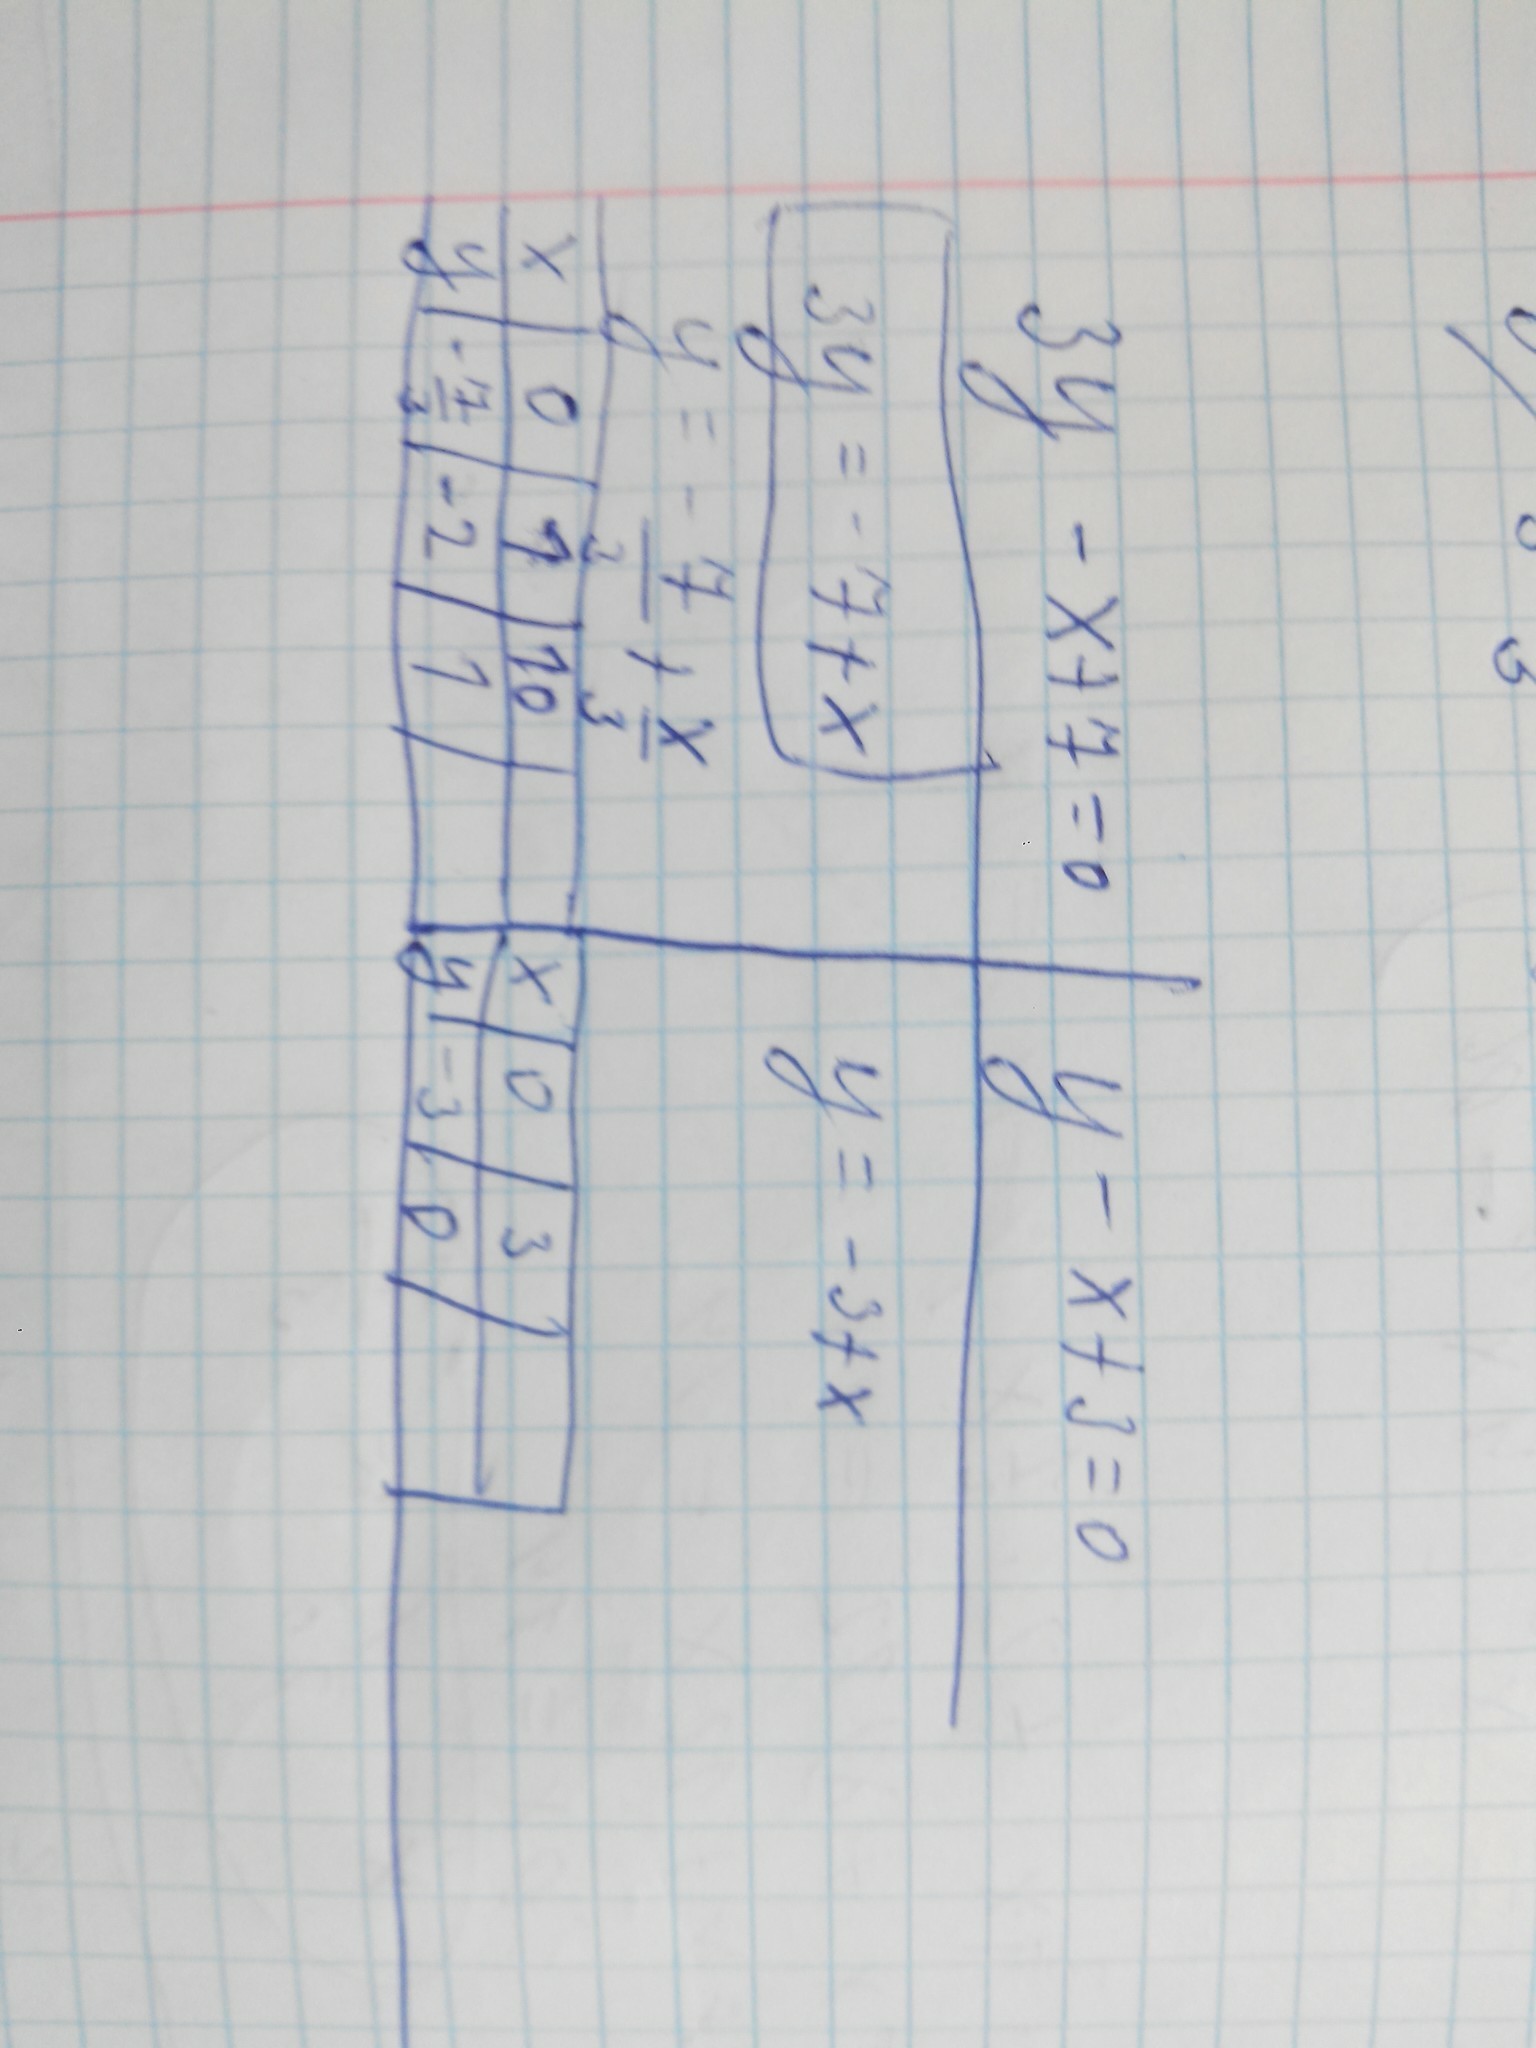 3y - x + 7 = 0
y - x + 3 = 0
3y = - 7 + x
y = - 3 + x
y = - 7/3 + x/3
x 0 1 10
y -7/3 -2 1
x 0 3
y -3 0